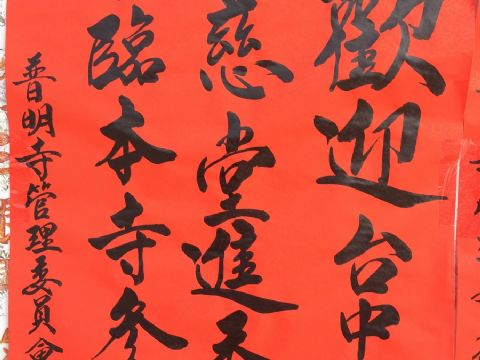 歡迎台中
慈堂進香
臨本寺參
普明寺管理委員會